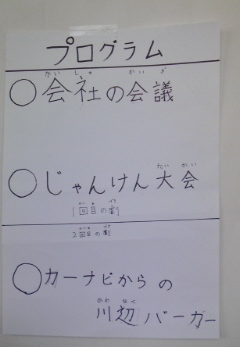 プログラム
○会社の会議
○じゃんけん大会
1回目の劇
2回目の劇
○カーナビからの
川辺バーガー